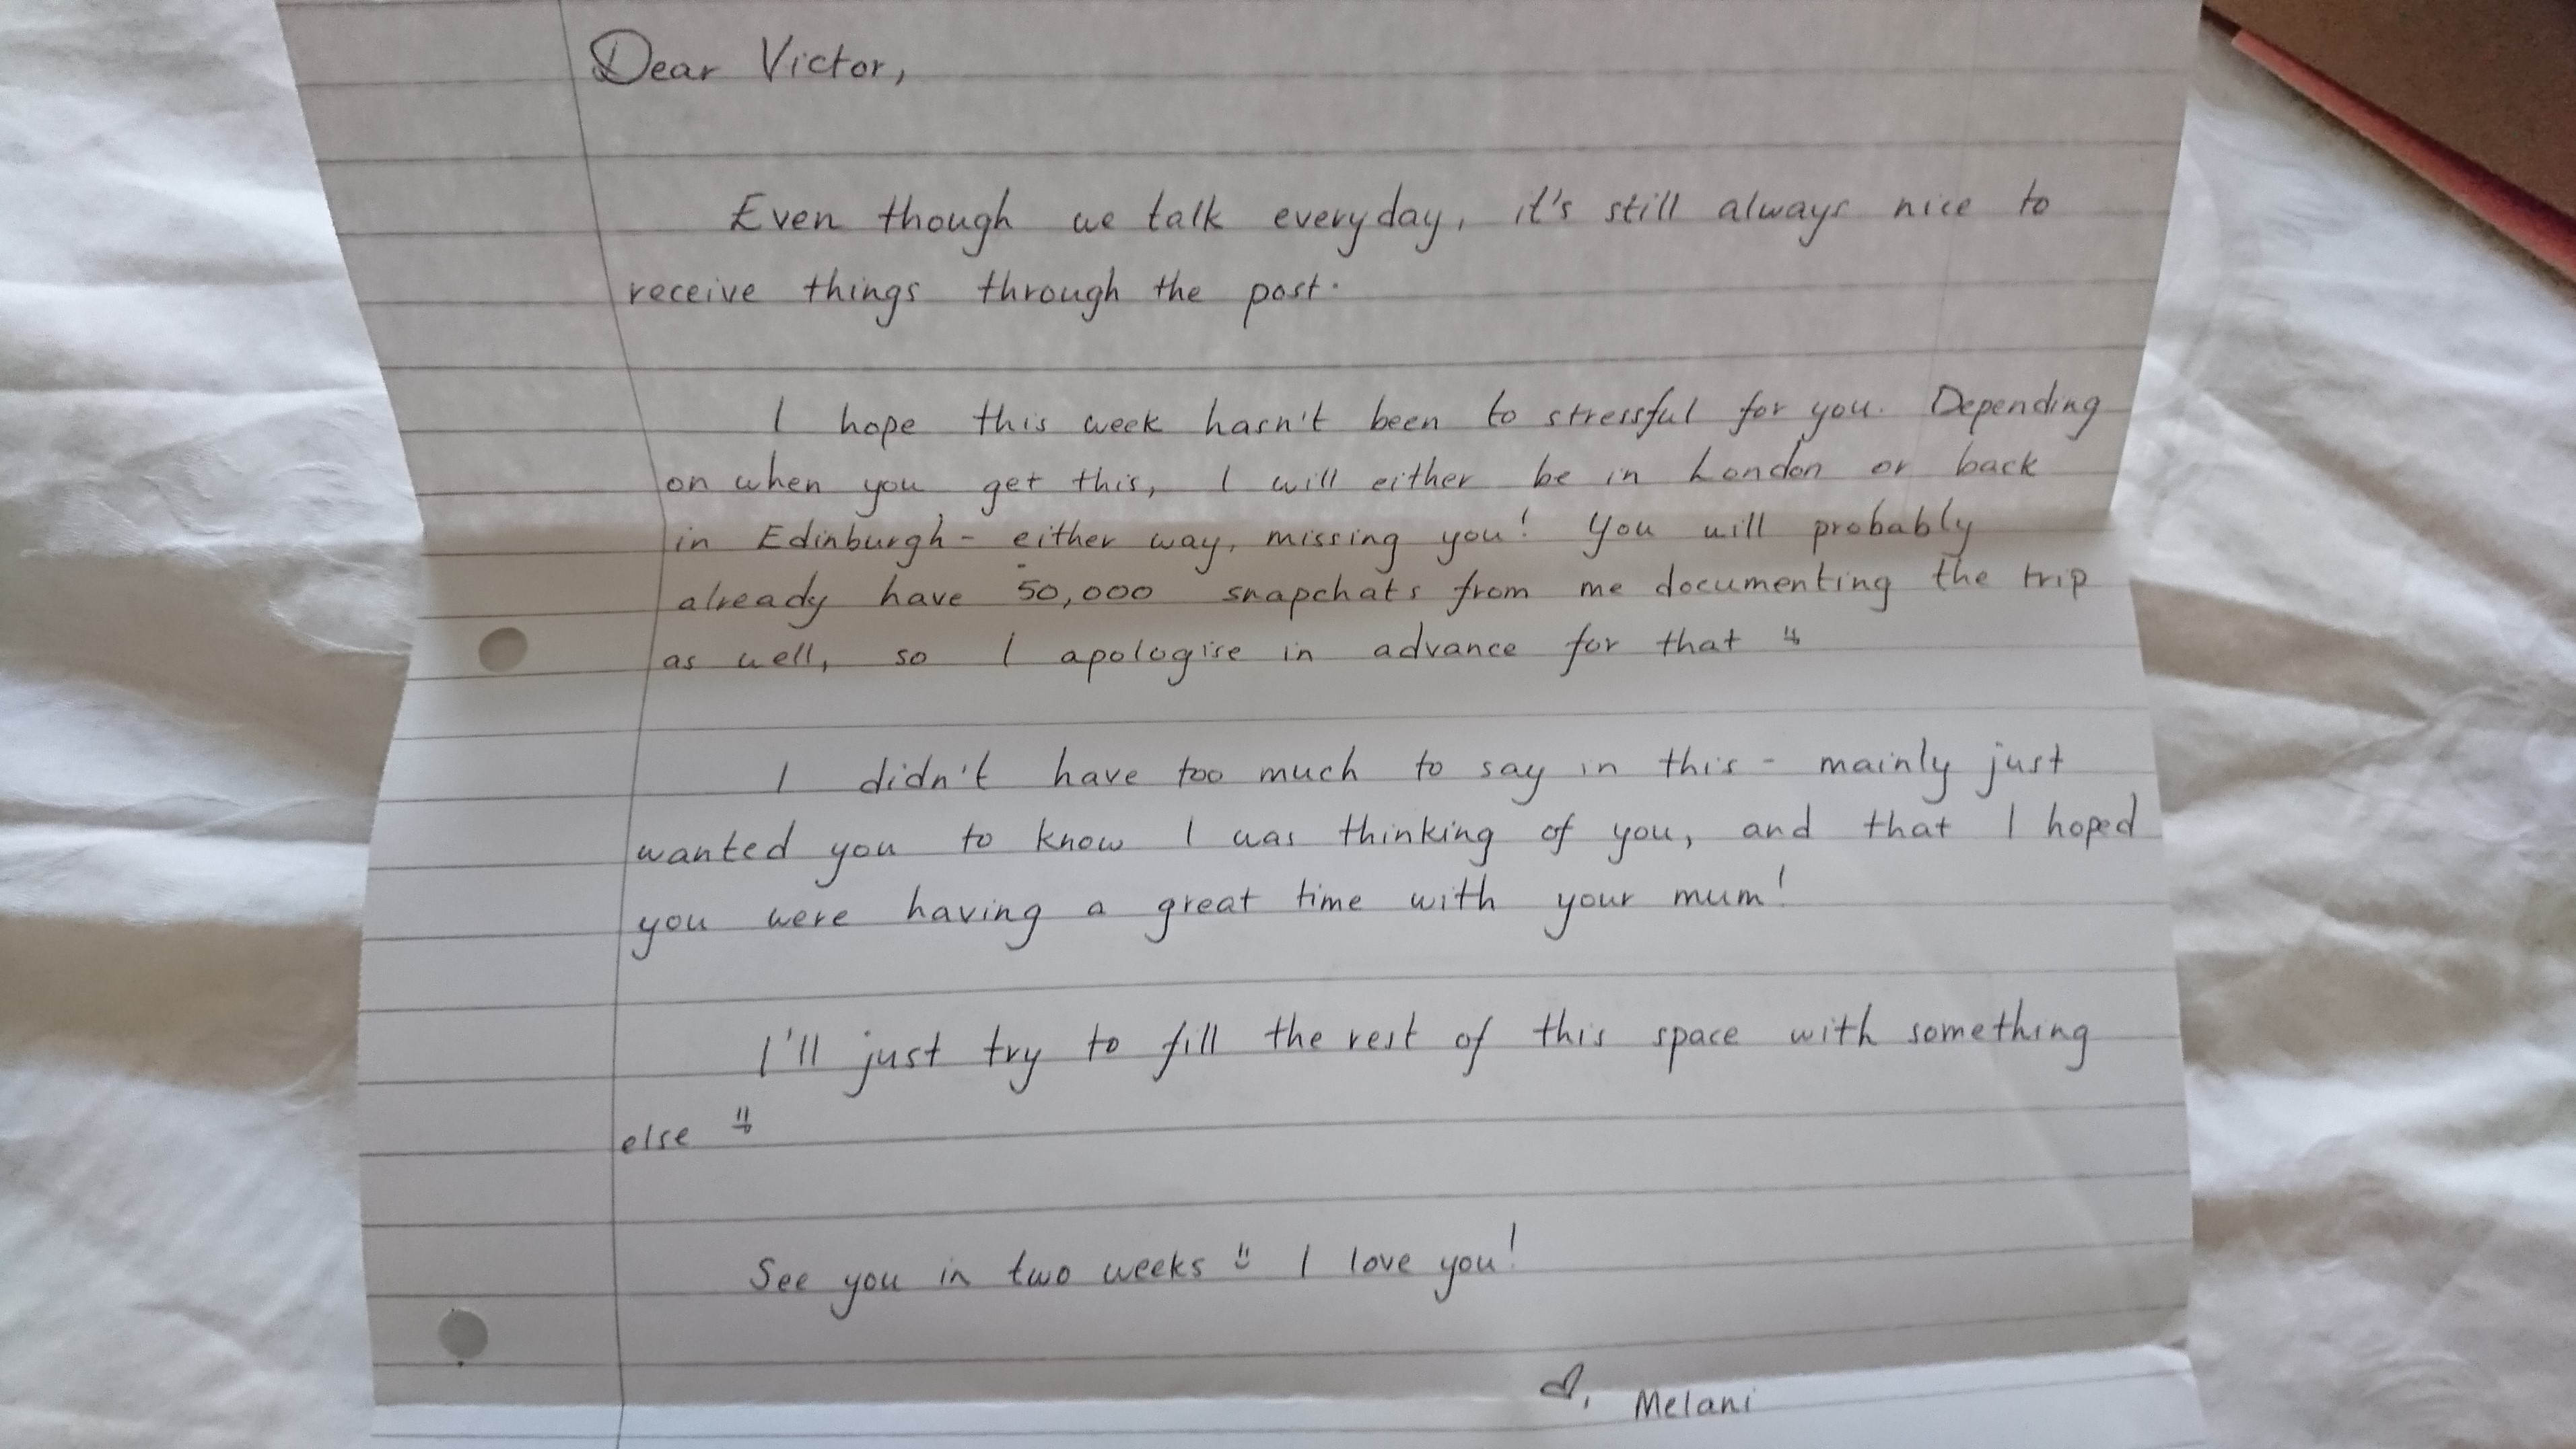 Dear Victor,
Even though we talk everyday, it's still always nice to
receive things through the post.
I hope this week hasn't been to stressful for you. Depending
on when you get this, I will either be in London or back
in Edinburgh - either way, missing you! You will probably
already have 50,000 snapchats from me documenting the trip
as well, so I apologise in advance for that
I didn't have too much to say in this - mainly just
wanted you to know I was thinking of you, and that I hoped
you were having a great time with your mum!
I'll just try to fill the rest of this space with something
else
See you in two weeks I love you!
♡, Melani